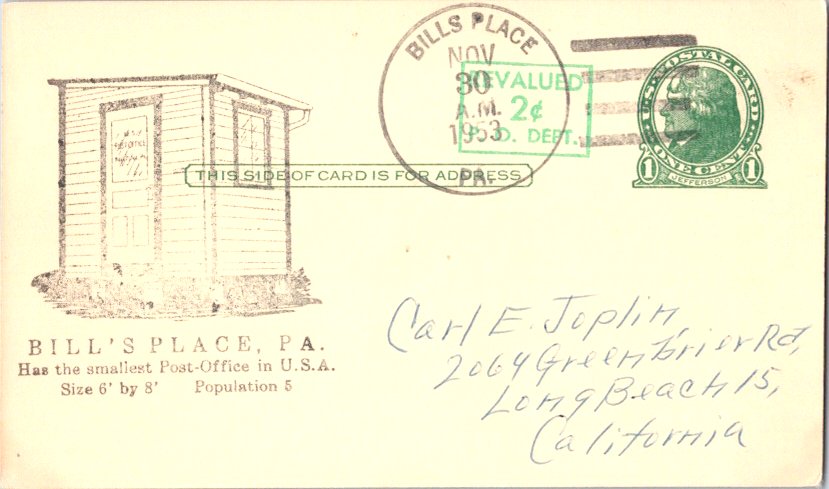 BILLS PLACE
NOV
30
A.M.
1953
PA.
REVALUED
2¢
P.O. DEPT.
U.S. POSTAL CARD
ONE CENT
1 JEFFERSON 1
THIS SIDE OF CARD IS FOR ADDRESS
BILL'S PLACE, PA.
Has the smallest Post-Office in U.S.A.
Size 6' by 8' Population 5
Carl E. Joplin,
2064 Greenbrier Rd,
Long Beach 15,
California